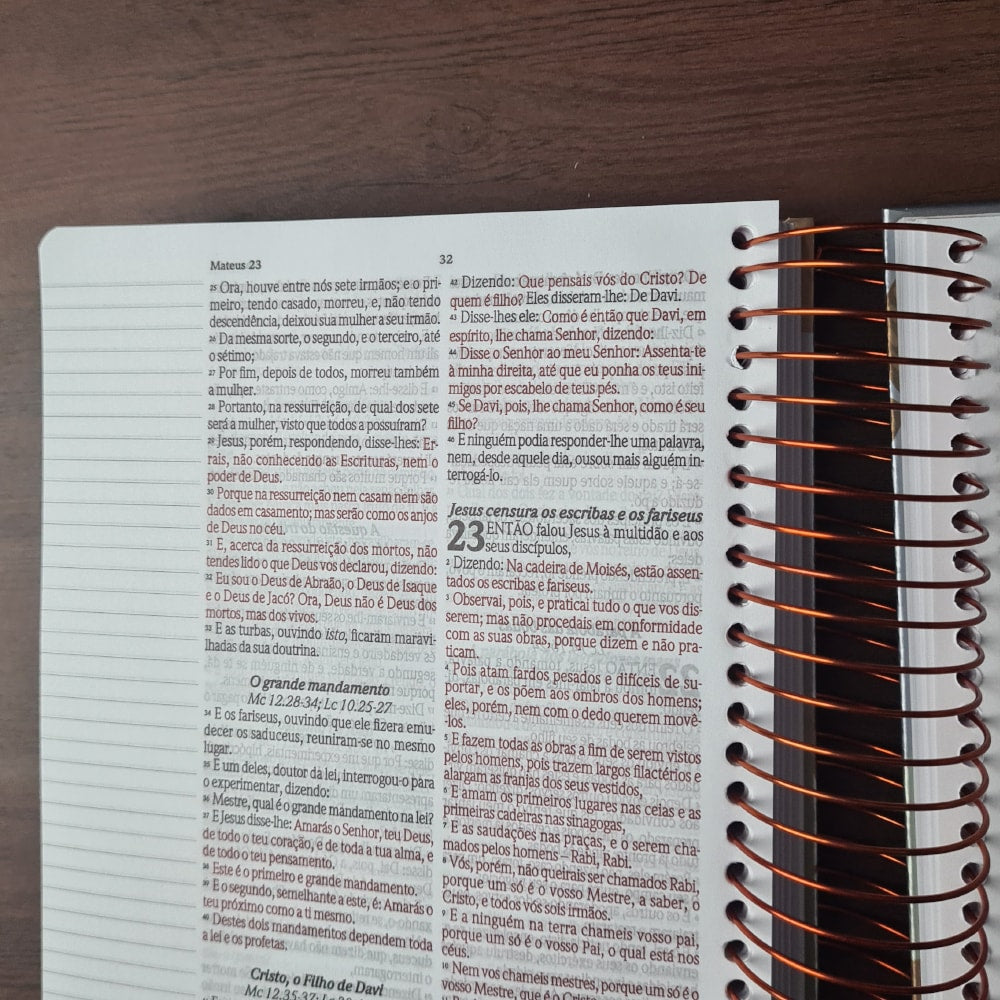 Mateus 23
32
25 Ora, houve entre nós sete irmãos; e o pri-
meiro, tendo casado, morreu, e, não tendo
descendência, deixou sua mulher a seu irmão.
26 Da mesma sorte, o segundo, e o terceiro, até
o sétimo;
27 Por fim, depois de todos, morreu também
a mulher.
28 Portanto, na ressurreição, de qual dos sete
será a mulher, visto que todos a possuíram?
29 Jesus, porém, respondendo, disse-lhes: Er-
rais, não conhecendo as Escrituras, nem o
poder de Deus.
30 Porque na ressurreição nem casam nem são
dados em casamento; mas serão como os anjos
de Deus no céu.
31 E, acerca da ressurreição dos mortos, não
tendes lido o que Deus vos declarou, dizendo:
32 Eu sou o Deus de Abraão, o Deus de Isaque
e o Deus de Jacó? Ora, Deus não é Deus dos
mortos, mas dos vivos.
33 E as turbas, ouvindo isto, ficaram maravi-
lhadas da sua doutrina.
O grande mandamento
Mc 12.28-34; Lc 10.25-27
34 E os fariseus, ouvindo que ele fizera emu-
decer os saduceus, reuniram-se no mesmo
lugar.
35 E um deles, doutor da lei, interrogou-o para
o experimentar, dizendo:
36 Mestre, qual é o grande mandamento na lei?
37 E Jesus disse-lhe: Amarás o Senhor, teu Deus,
de todo o teu coração, e de toda a tua alma, e
de todo o teu pensamento.
38 Este é o primeiro e grande mandamento.
39 E o segundo, semelhante a este, é: Amarás o
teu próximo como a ti mesmo.
40 Destes dois mandamentos dependem toda
a lei e os profetas.
Cristo, o Filho de Davi
Mc 12.35-37;
42 Dizendo: Que pensais vós do Cristo? De
quem é filho? Eles disseram-lhe: De Davi.
43 Disse-lhes ele: Como é então que Davi, em
espírito, lhe chama Senhor, dizendo:
44 Disse o Senhor ao meu Senhor: Assenta-te
à minha direita, até que eu ponha os teus ini-
migos por escabelo de teus pés.
45 Se Davi, pois, lhe chama Senhor, como é seu
filho?
46 E ninguém podia responder-lhe uma palavra,
nem, desde aquele dia, ousou mais alguém in-
terrogá-lo.
Jesus censura os escribas e os fariseus
23 ENTÃO falou Jesus à multidão e aos
seus discípulos,
2 Dizendo: Na cadeira de Moisés, estão assen-
tados os escribas e fariseus.
3 Observai, pois, e praticai tudo o que vos dis-
serem; mas não procedais em conformidade
com as suas obras, porque dizem e não pra-
ticam.
4 Pois atam fardos pesados e difíceis de su-
portar, e os põem aos ombros dos homens;
eles, porém, nem com o dedo querem movê-
-los.
5 E fazem todas as obras a fim de serem vistos
pelos homens, pois trazem largos filactérios e
alargam as franjas dos seus vestidos,
6 E amam os primeiros lugares nas ceias e as
primeiras cadeiras nas sinagogas,
7 E as saudações nas praças, e o serem cha-
mados pelos homens – Rabi, Rabi.
8 Vós, porém, não queirais ser chamados Rabi,
porque um só é o vosso Mestre, a saber, o
Cristo, e todos vós sois irmãos.
9 E a ninguém na terra chameis vosso pai,
porque um só é o vosso Pai, o qual está nos
céus.
10 Nem vos chameis mestres, porque um só é o
vosso Mestre, que é o Cristo.